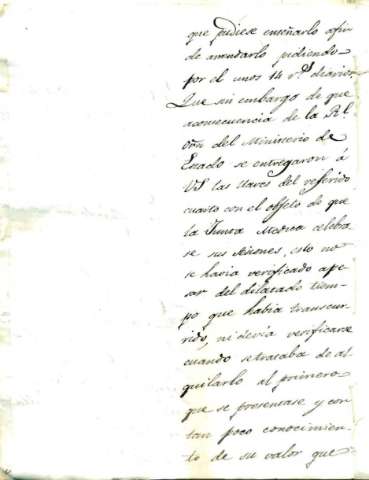 que pudiese enseñarlo afin
de arrendarlo pidiendo
por el unos 14 r.s diarios.
Que sin embargo de que
aconsecuencia de la Rl.
orn del Ministerio de
Estado se entregaron á
VS las llaves del referido
cuarto con el objeto de que
la Junta Medica celebra-
se sus sesiones, esto no
se havia verificado ape-
sar del dilatado tiem-
po que habia transcur-
rido, ni devia verificarse
cuando se trataba de al
quilarlo al primero
que se presentase y con
tan poco conocimien-
to de su valor que